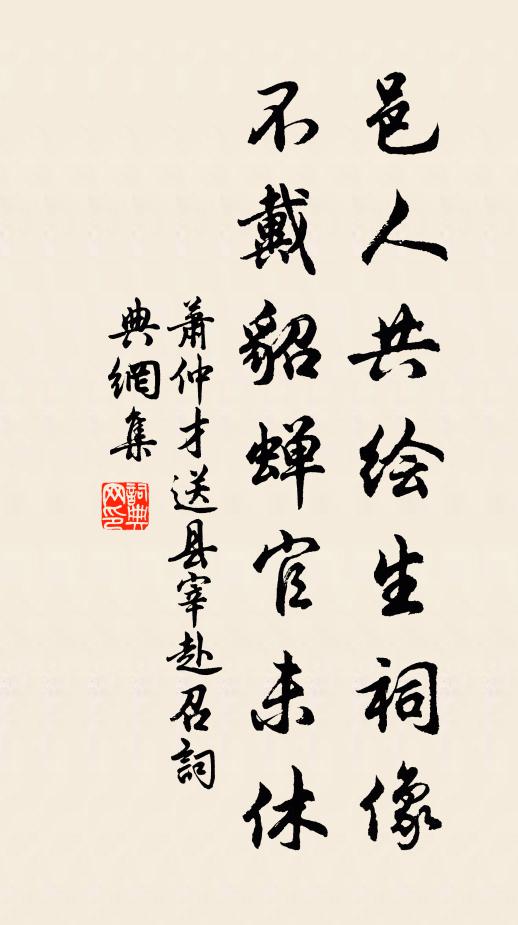 邑人共绘生祠像
不戴貂蝉官未休
萧仲才送县宰赴召詞
典網集
詞典
网印